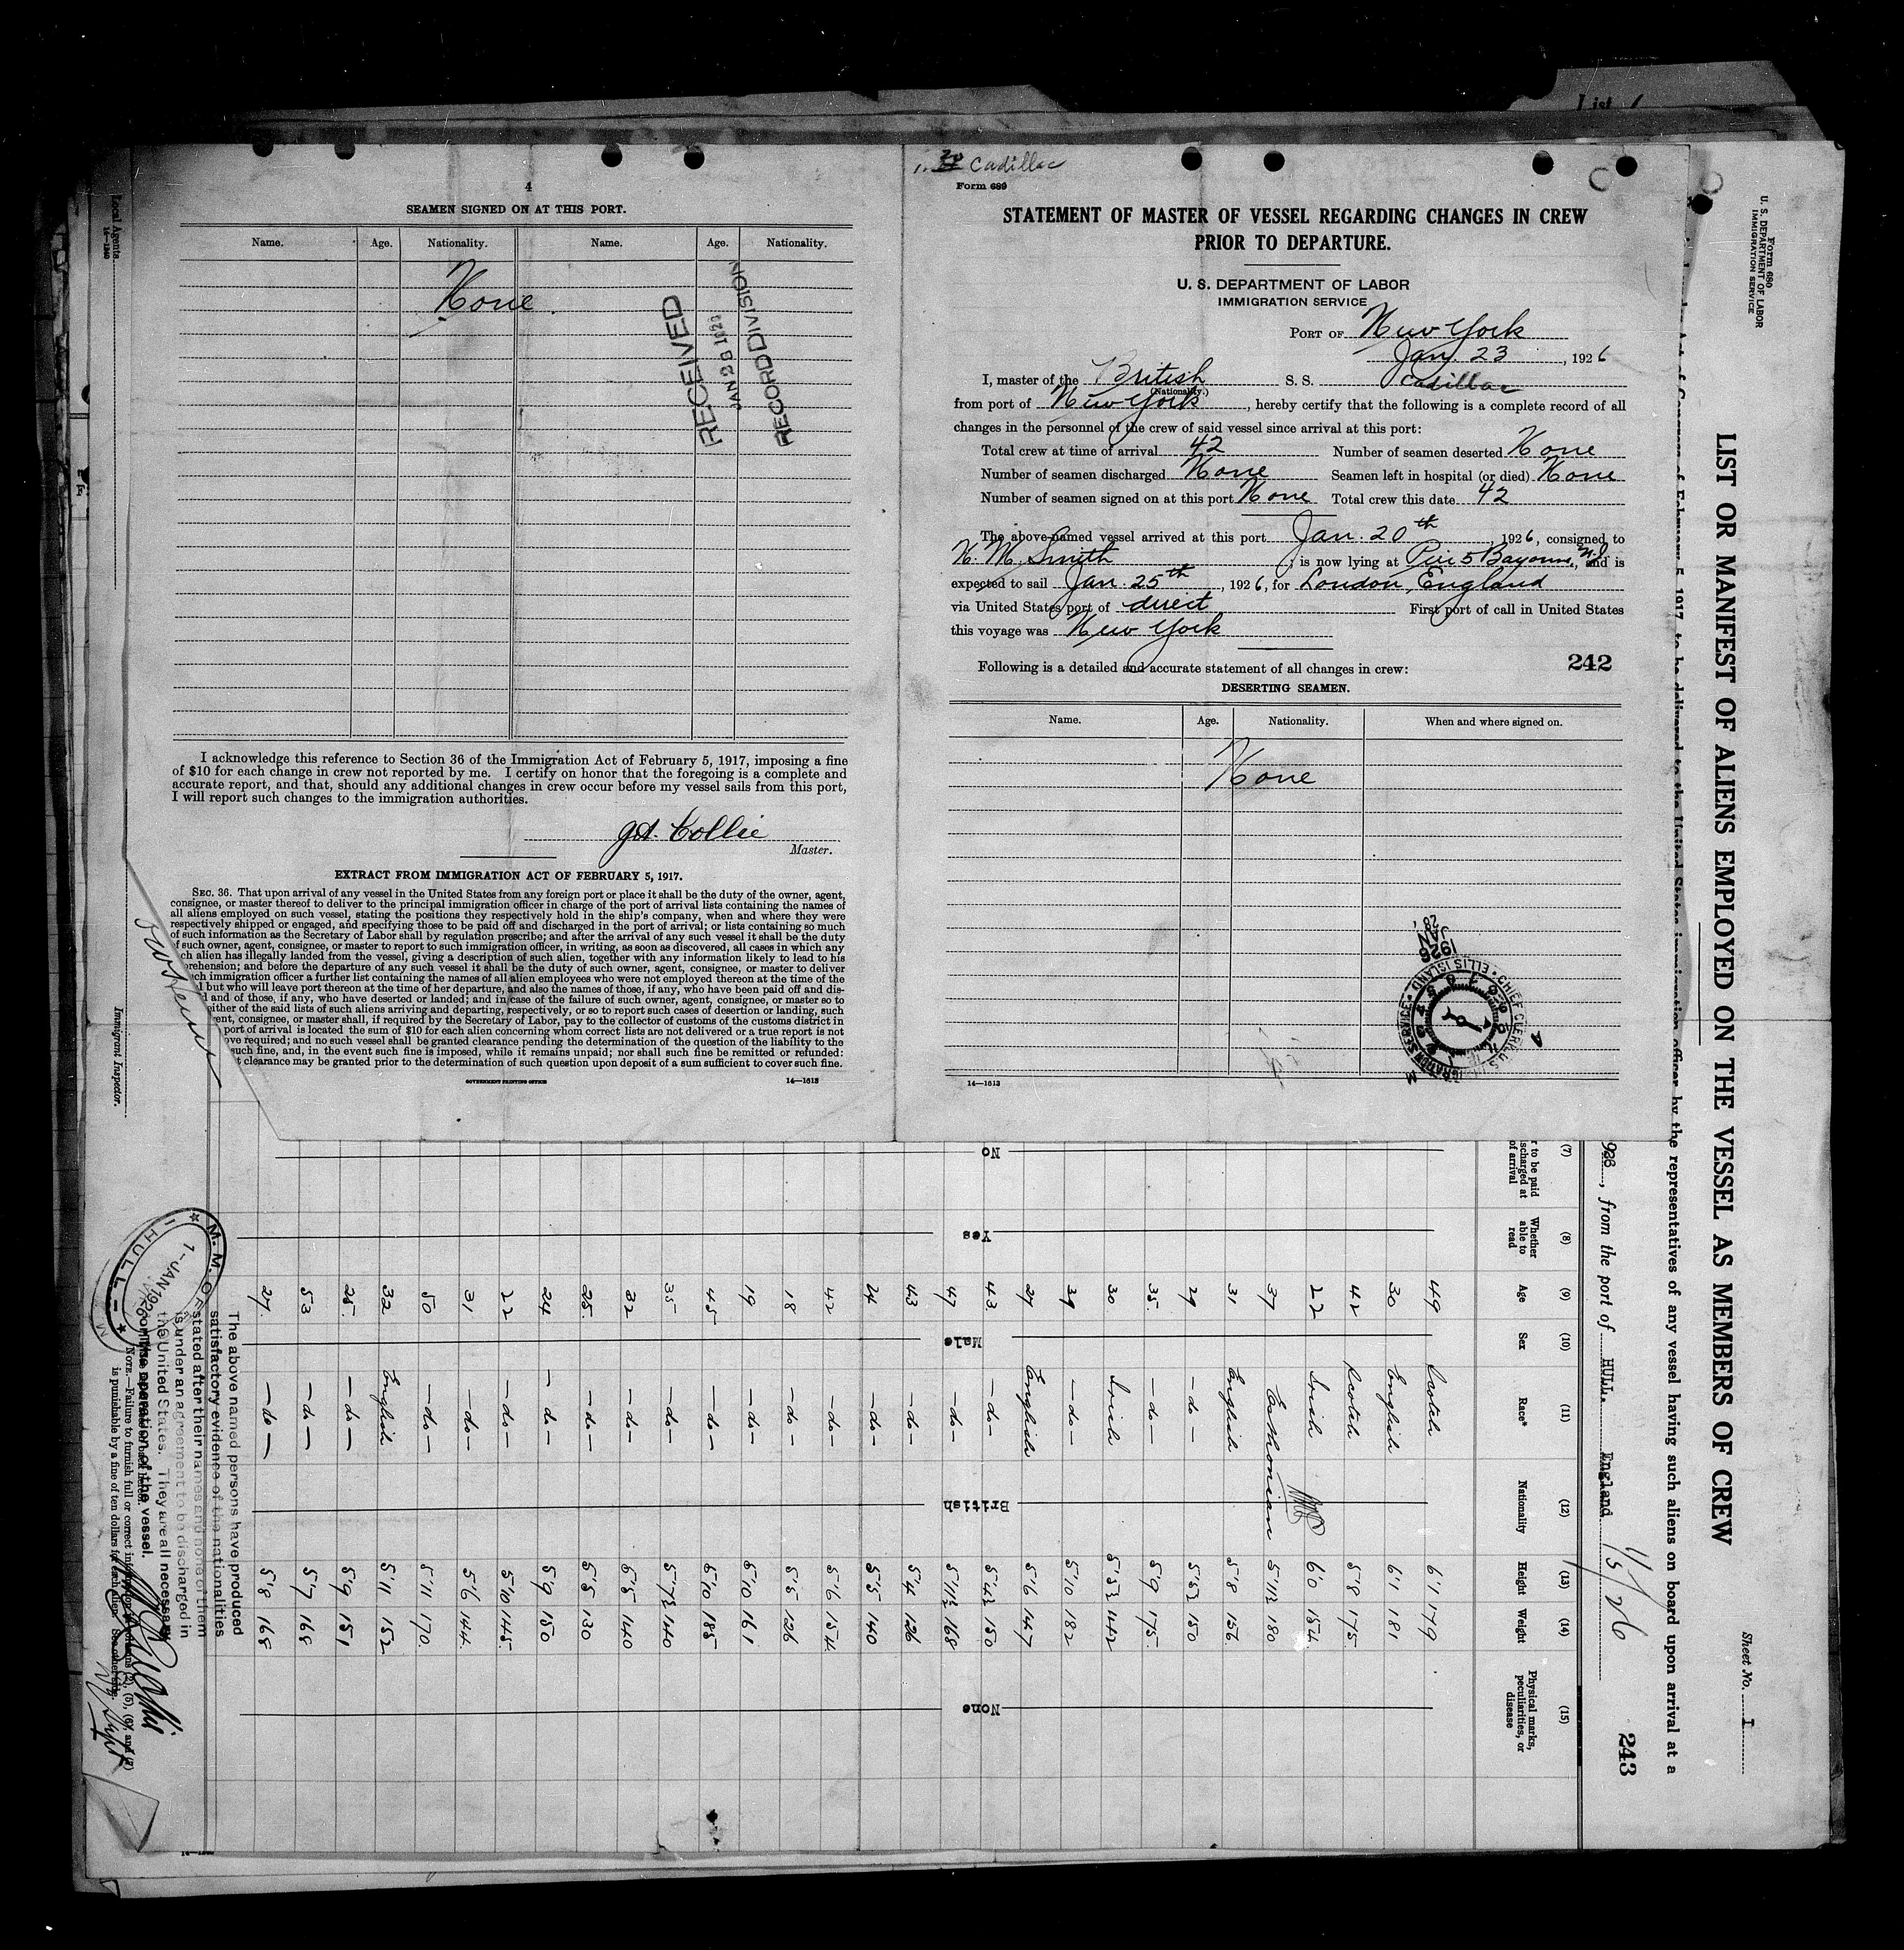 List 1
4
SEAMEN SIGNED ON AT THIS PORT.
Name. Age. Nationality. Name. Age. Nationality.
None
RECEIVED
RECORD DIVISION
I acknowledge this reference to Section 36 of the Immigration Act of February 5, 1917, imposing a fine
of $10 for each change in crew not reported by me. I certify on honor that the foregoing is a complete and
accurate report, and that, should any additional changes in crew occur before my vessel sails from this port,
I will report such changes to the immigration authorities.
Collie
Master.
EXTRACT FROM IMMIGRATION ACT OF FEBRUARY 5, 1917.
SEC. 36. That upon arrival of any vessel in the United States from any foreign port or place it shall be the duty of the owner, agent,
consignee, or master thereof to deliver to the principal immigration officer in charge of the port of arrival lists containing the names of
all aliens employed on such vessel, stating the positions they respectively hold in the ship's company, when and where they were
respectively shipped or engaged, and specifying those to be paid off and discharged in the port of arrival; or lists containing so much
of such information as the Secretary of Labor shall by regulation prescribe; and after the arrival of any such vessel it shall be the duty
of such owner, agent, consignee, or master to report to such immigration officer, in writing, as soon as discovered, all cases in which any
ch alien has illegally landed from the vessel, giving a description of such alien, together with any information likely to lead to his
rehension; and before the departure of any such vessel it shall be the duty of such owner, agent, consignee, or master to deliver
ch immigration officer a further list containing the names of all alien employees who were not employed thereon at the time of the
l but who will leave port thereon at the time of her departure, and also the names of those, if any, who have been paid off and dis-
d and of those, if any, who have deserted or landed; and in case of the failure of such owner, agent, consignee, or master so to
either of the said lists of such aliens arriving and departing, respectively, or so to report such cases of desertion or landing, such
ent, consignee, or master shall, if required by the Secretary of Labor, pay to the collector of customs of the customs district in
port of arrival is located the sum of $10 for each alien concerning whom correct lists are not delivered or a true report is not
ove required; and no such vessel shall be granted clearance pending the determination of the question of the liability to the
such fine, and, in the event such fine is imposed, while it remains unpaid; nor shall such fine be remitted or refunded:
t clearance may be granted prior to the determination of such question upon deposit of a sum sufficient to cover such fine.
GOVERNMENT PRINTING OFFICE 14—1613
Cadillac
Form 689
STATEMENT OF MASTER OF VESSEL REGARDING CHANGES IN CREW
PRIOR TO DEPARTURE.
U. S. DEPARTMENT OF LABOR
IMMIGRATION SERVICE
PORT OF New York
Jan. 23, 1926
I, master of the British S. S. Cadillac
(Nationality.)
from port of New York, hereby certify that the following is a complete record of all
changes in the personnel of the crew of said vessel since arrival at this port:
Total crew at time of arrival 42 Number of seamen deserted None
Number of seamen discharged None Seamen left in hospital (or died) None
Number of seamen signed on at this port None Total crew this date 42
The above-named vessel arrived at this port Jan. 20th, 1926, consigned to
Smith, is now lying at Pier 5 Bayonne, N.J. and is
expected to sail Jan. 25th, 1926, for London, England
via United States port of direct First port of call in United States
this voyage was New York
Following is a detailed and accurate statement of all changes in crew: 242
DESERTING SEAMEN.
Name. Age. Nationality. When and where signed on.
None
1926
JAN
28
14—1613
Form 680
U. S. DEPARTMENT OF LABOR
IMMIGRATION SERVICE
LIST OR MANIFEST OF ALIENS EMPLOYED ON THE VESSEL AS MEMBERS OF CREW
Sheet No. 1
by the representatives of any vessel having such aliens on board upon arrival at a
, from the port of HULL. England 1/5/26
243
(7) (8) (9) (10) (11) (12) (13) (14) (15)
Whether able to read
Age
Sex
Race*
Nationality
Height
Weight
Physical marks, peculiarities, or disease
No Yes Male British None
49 Scotch 6'1 179
30 English 6'1 181
42 Scotch 5'8 175
22 Irish 6'0 154
37 Esthonian 5'11½ 180
31 English 5'8 156
29 —do— 5'5½ 150
35 —do— 5'9 175
30 Irish 5'5½ 142
39 —do— 5'10 182
27 English 5'6 147
43 —do— 5'4½ 150
47 —do— 5'11½ 168
43 —do— 5'4 126
24 —do— 5'5 140
42 —do— 5'6 154
18 —do— 5'5 126
19 —do— 5'10 161
45 —do— 5'10 185
35 —do— 5'7½ 140
32 —do— 5'5 140
25 —do— 5'5 130
24 —do— 5'9 150
22 —do— 5'10 145
31 —do— 5'6 144
50 —do— 5'11 170
32 English 5'11 152
25 —do— 5'9 151
53 —do— 5'7 168
27 —do— 5'8 168
The above named persons have produced
satisfactory evidence of the nationalities
stated after their names and none of them
is under an agreement to be discharged in
the United States. They are all necessary
operation of the vessel.
NOTE.—Failure to furnish full or correct
is punishable by a fine of ten dollars for each alien. See other side.
HULL
Local Agents
14—1240
Immigrant Inspector.